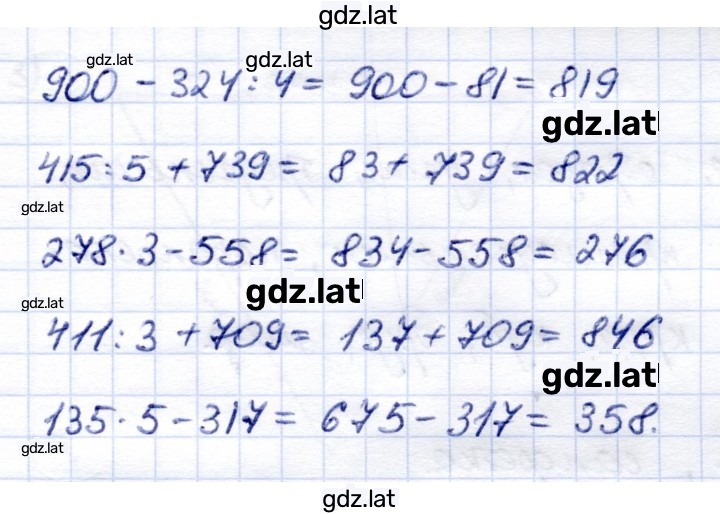 gdz.lat
gdz.lat gdz.lat
900 - 324 : 4 = 900 - 81 = 819
gdz.lat
415 : 5 + 739 = 83 + 739 = 822
gdz.lat
278 · 3 - 558 = 834 - 558 = 276
gdz.lat
gdz.lat
411 : 3 + 709 = 137 + 709 = 846
gdz.lat
135 · 5 - 317 = 675 - 317 = 358.
gdz.lat
gdz.lat